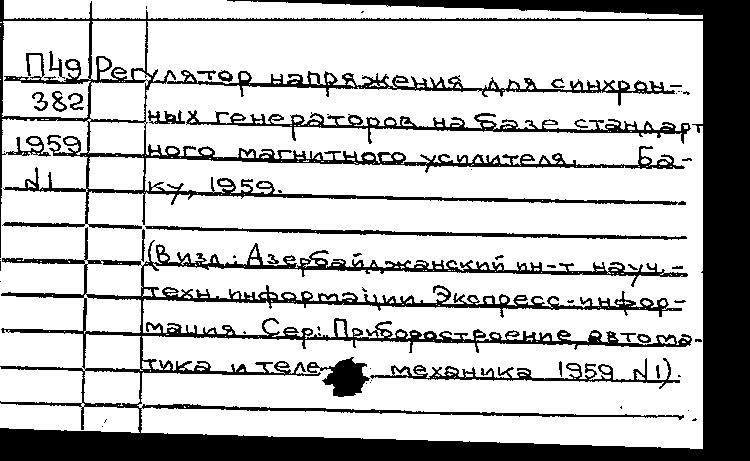 П49 Регулятор напряжения для синхрон-
382 ных генераторов на базе стандарт
1959 ного магнитного усилителя. Ба-
N1 ку, 1959.
(В изд.: Азербайджанский ин-т науч.-
техн. информации. Экспресс-инфор-
мация. Сер.: Приборостроение, автома-
тика и теле- механика 1959 N1).